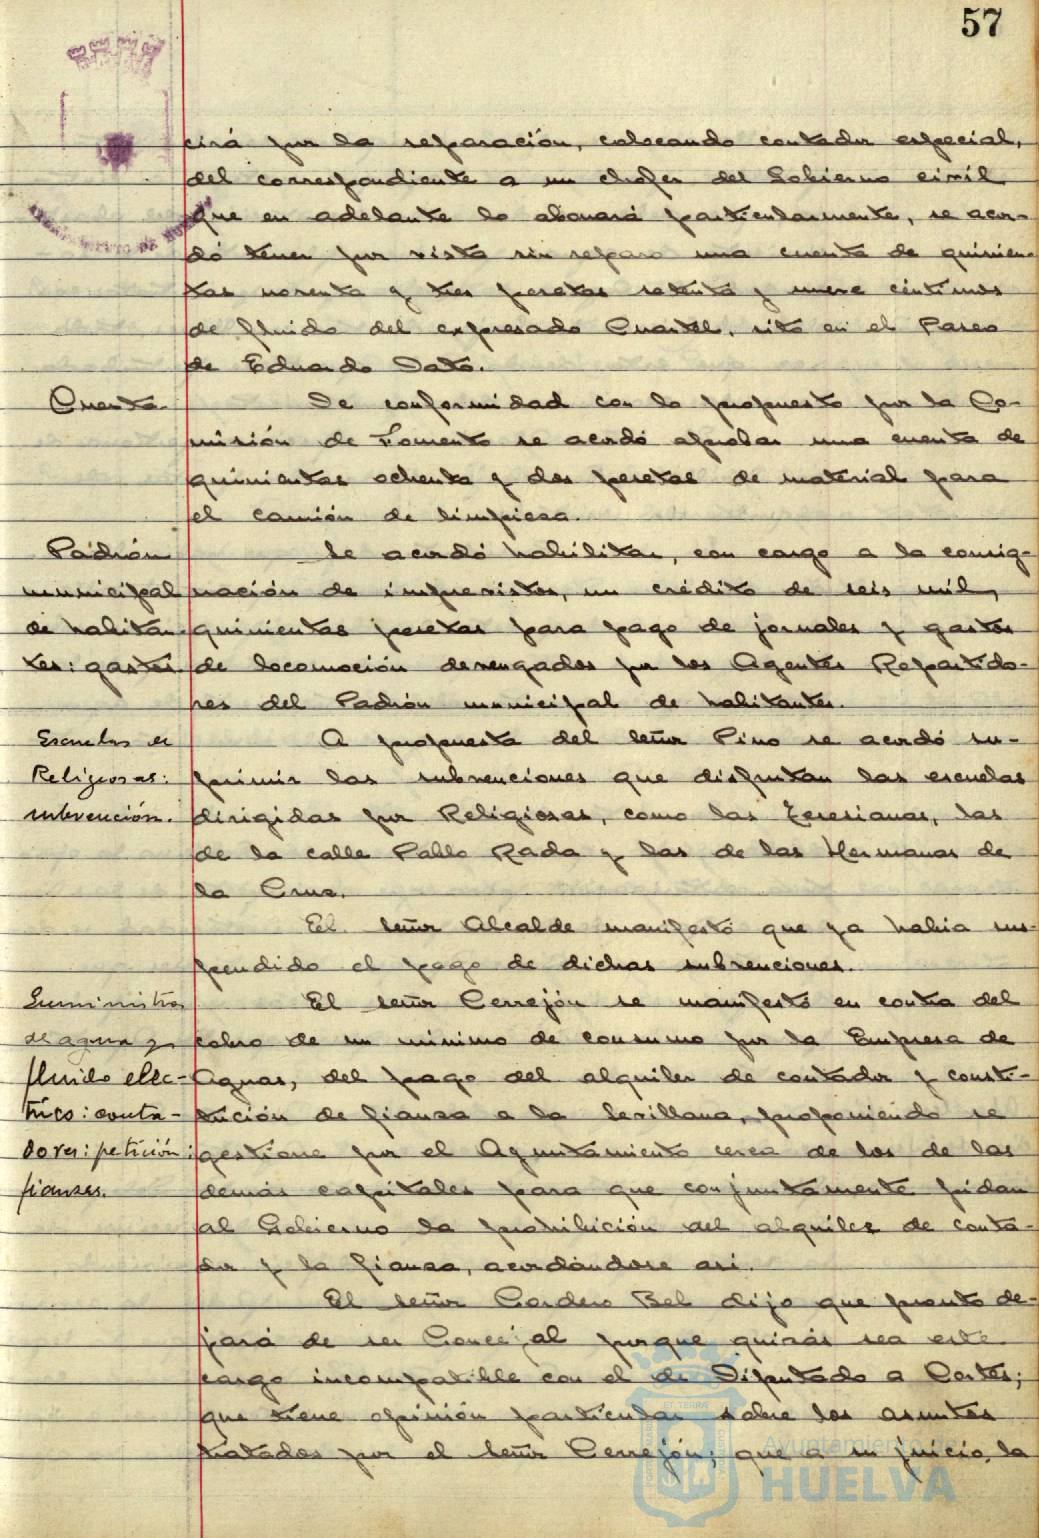 57
cirá por la reparación, colocando contador especial,
del correspondiente a un chofer del Gobierno civil
que en adelante lo abonará particularmente, se acor-
dó tener por vista sin reparo una cuenta de quinien-
tas noventa y tres pesetas setenta y nueve céntimos
de fluido del expresado Cuartel, sito en el Paseo
de Eduardo Dato.
Cuenta.
De conformidad con lo propuesto por la Co-
misión de Fomento se acordó aprobar una cuenta de
quinientas ochenta y dos pesetas de material para
el camión de limpieza.
Padrón
municipal
de habitan-
tes: gastos
Se acordó habilitar, con cargo a la consig-
nación de imprevistos, un crédito de seis mil
quinientas pesetas para pago de jornales y gastos
de locomoción devengados por los Agentes Repartido-
res del Padrón municipal de habitantes.
Escuelas de
Religiosas:
subvención.
A propuesta del Señor Pino se acordó su-
primir las subvenciones que disfrutan las escuelas
dirigidas por Religiosas, como las Teresianas, las
de la calle Pablo Rada y las de las Hermanas de
la Cruz.
El Señor Alcalde manifestó que ya había sus-
pendido el pago de dichas subvenciones.
Suministros
de agua y
fluido eléc-
trico: conta-
dores: petición:
fianzas.
El Señor Cerrejón se manifestó en contra del
cobro de un mínimo de consumo por la Empresa de
Aguas, del pago del alquiler de contador y consti-
tución de fianza a la Sevillana, proponiendo se
gestione por el Ayuntamiento cerca de los de las
demás capitales para que conjuntamente pidan
al Gobierno la prohibición del alquiler de conta-
dor y la fianza, acordándose así.
El Señor Cordero Bel dijo que pronto de-
jará de ser Concejal porque quizás sea este
cargo incompatible con el de Diputado a Cortes;
que tiene opinión particular sobre los asuntos
tratados por el Señor Cerrejón; que a su juicio, la
Ayuntamiento de
HUELVA